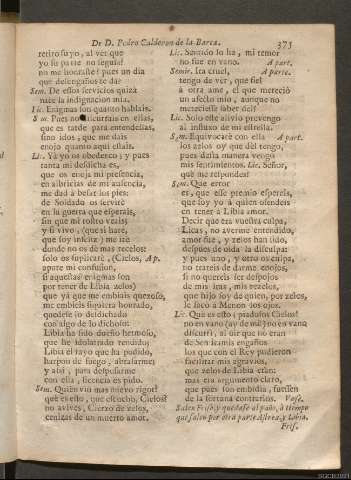 De D. Pedro Calderon de la Barca.
375
retiro suyo, al ver que
yo su parte no seguia?
no me honraste? pues un dia
que desengaños te da?
Sem. De essos servicios quizá
nace la indignacion mia.
Lic. Enigmas son quanto hablais.
Sem. Pues no discurrais en ellas,
que es tarde para entendellas,
sino idos, que me dais
enojo quanto aqui estais.
Lic. Yá yo os obedezco; y pues
tanta mi desdicha es,
que os enoja mi presencia,
en albricias de mi ausencia,
me dad á besar los pies:
de Soldado os serviré
en la guerra que esperais,
sin que mi rostro veais;
y si vivo, (que si haré,
que soy infeliz) me iré
donde no os dé mas rezelos:
solo os suplicaré, (Cielos, Ap.
apure mi confusion,
si aquestas enigmas son
por tener de Libia zelos)
que yá que me embiais quexoso,
me embieis siquiera honrado,
quedese lo desdichado
con algo de lo dichoso:
Libia ha sido dueño hermoso,
que he idolatrado rendido;
Libia el rayo que ha podido,
harpon de fuego, abrasarme;
y assi, para desposarme
con ella, licencia os pido.
Sem. Quién vió mas nuevo rigor?
qué es esto, que escucho, Cielos?
no aviveis, Cierzo de zelos,
cenizas de un muerto amor.
Lic. Sentido lo ha, mi temor
no fue en vano. A part.
Semir. Ira cruel, A parte.
tengo de ver, que fiel
á otra ame, el que mereció
un afecto mio, aunque no
mereciesse saber dél?
Lic. Solo este alivio prevengo
al influxo de mi estrella.
Sem. Equivocaré con ella A part.
los zelos oy que dél tengo,
pues desta manera vengo
mis sentimientos. Lic. Señor,
qué me respondes?
Sem. Que error
es, que esse premio espereis,
que soy yo á quien ofendeis
en tener á Libia amor.
Decir que era vuestra culpa,
Licas, no averme entendido,
amor fue, y zelos han sido,
despues de oida la disculpa:
y pues uno, y otro os culpa,
no trateis de darme enojos,
si no quereis ser despojos
de mis iras, mis rezelos,
que hijo soy de quien, por zelos,
le sacó á Menon los ojos.
Lic. Qué es esto? piadosos Cielos!
no en vano (ay de mi!) no en vano
discurrí, al oir que no eran
de Semiramis engaños
los que con el Rey pudieron
facilitar mis agravios,
que zelos de Libia eran:
mas era argumento claro,
que pues son embidia, fuessen
de la fortuna contrarios. Vase.
Salen Friso, y quedase al paño, á tiempo
que salen por otra parte Astrea, y Libia.
Fris.